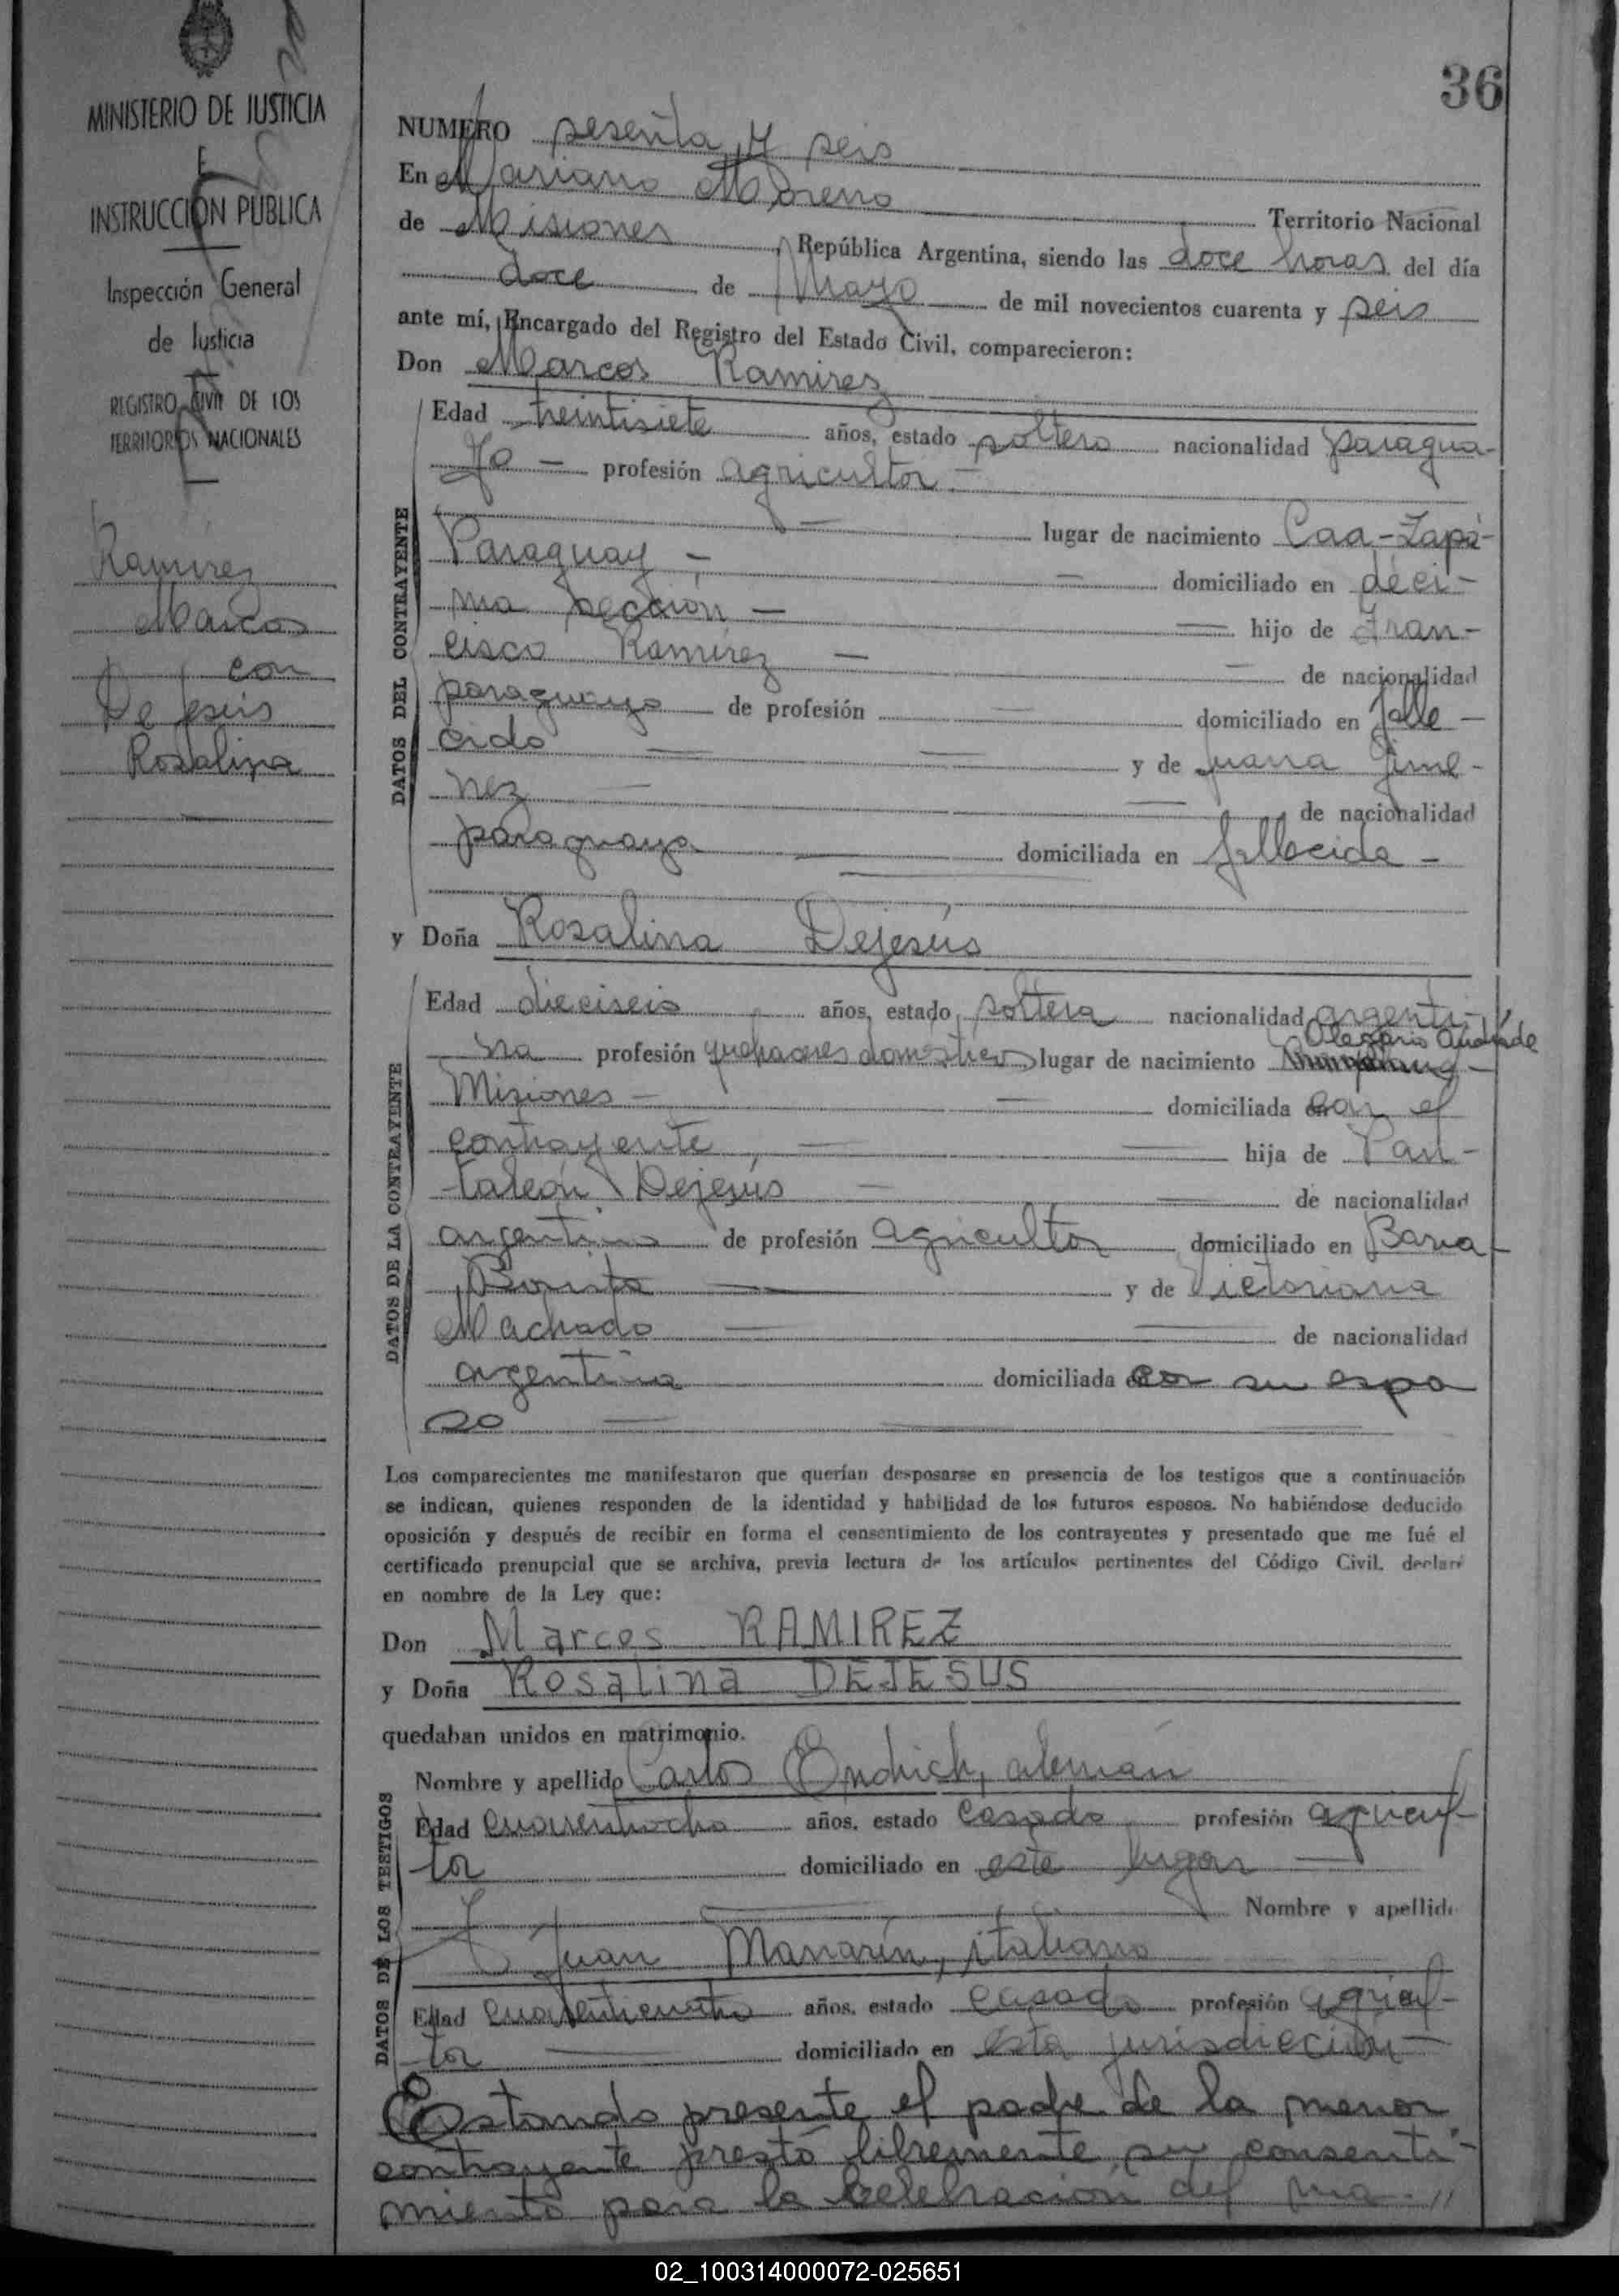 MINISTERIO DE JUSTICIA
E
INSTRUCCIÓN PUBLICA
Inspección General
de Justicia
REGISTRO CIVIL DE LOS
TERRITORIOS NACIONALES
Ramírez
Marcos
con
De Jesús
Rosalina
36
NUMERO sesenta y seis
En Mariano Moreno Territorio Nacional
de Misiones, República Argentina, siendo las doce horas del día
doce de Mayo de mil novecientos cuarenta y seis
ante mí, Encargado del Registro del Estado Civil, comparecieron:
Don Marcos Ramirez
DATOS DEL CONTRAYENTE
Edad treintisiete años, estado soltero nacionalidad paragua-
yo — profesión agricultor —
— lugar de nacimiento Caa-Zapá-
Paraguay — domiciliado en déci-
ma sección — hijo de Fran-
cisco Ramírez — de nacionalidad
paraguayo de profesión — domiciliado en falle-
cido — y de Juana Jime-
nez — de nacionalidad
paraguaya domiciliada en fallecida -
y Doña Rosalina Dejesús
DATOS DE LA CONTRAYENTE
Edad dieciseis años, estado soltera nacionalidad argenti-
na profesión quehaceres domésticos lugar de nacimiento Olegario Andrade
Misiones — domiciliada con el
contrayente, — hija de Pan-
taleón Dejesús — de nacionalidad
argentino de profesión agricultor domiciliado en Barra
Bonita — y de Victoriana
Machado — de nacionalidad
argentina domiciliada con su espo
so —
Los comparecientes me manifestaron que querían desposarse en presencia de los testigos que a continuación
se indican, quienes responden de la identidad y habilidad de los futuros esposos. No habiéndose deducido
oposición y después de recibir en forma el consentimiento de los contrayentes y presentado que me fué el
certificado prenupcial que se archiva, previa lectura de los artículos pertinentes del Código Civil, declaré
en nombre de la Ley que:
Don Marcos RAMIREZ
y Doña Rosalina DEJESUS
quedaban unidos en matrimonio.
DATOS DE LOS TESTIGOS
Nombre y apellido Carlos Endrich, alemán
Edad cuarentiocho años, estado casado profesión agricul-
tor domiciliado en este lugar —
Nombre y apellido
Juan Manarín, italiano
Edad cuarenticuatro años, estado casado profesión agricul-
tor — domiciliado en esta jurisdicción —
Estando presente el padre de la menor
contrayente prestó libremente su consenti-
miento para la celebración del ma-//
02_100314000072-025651